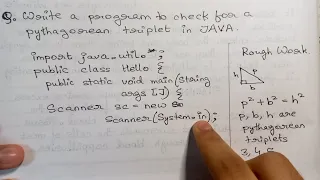 Q. Write a program to check for a
pythagorean triplet in JAVA.
import java.util.*;
public class Hello {
public static void main(String
args[]) {
Scanner sc = new
Scanner(System.in);
Rough Work
h
p
b
p² + b² = h²
p, b, h are
pythagorean
triplets
3, 4, 5